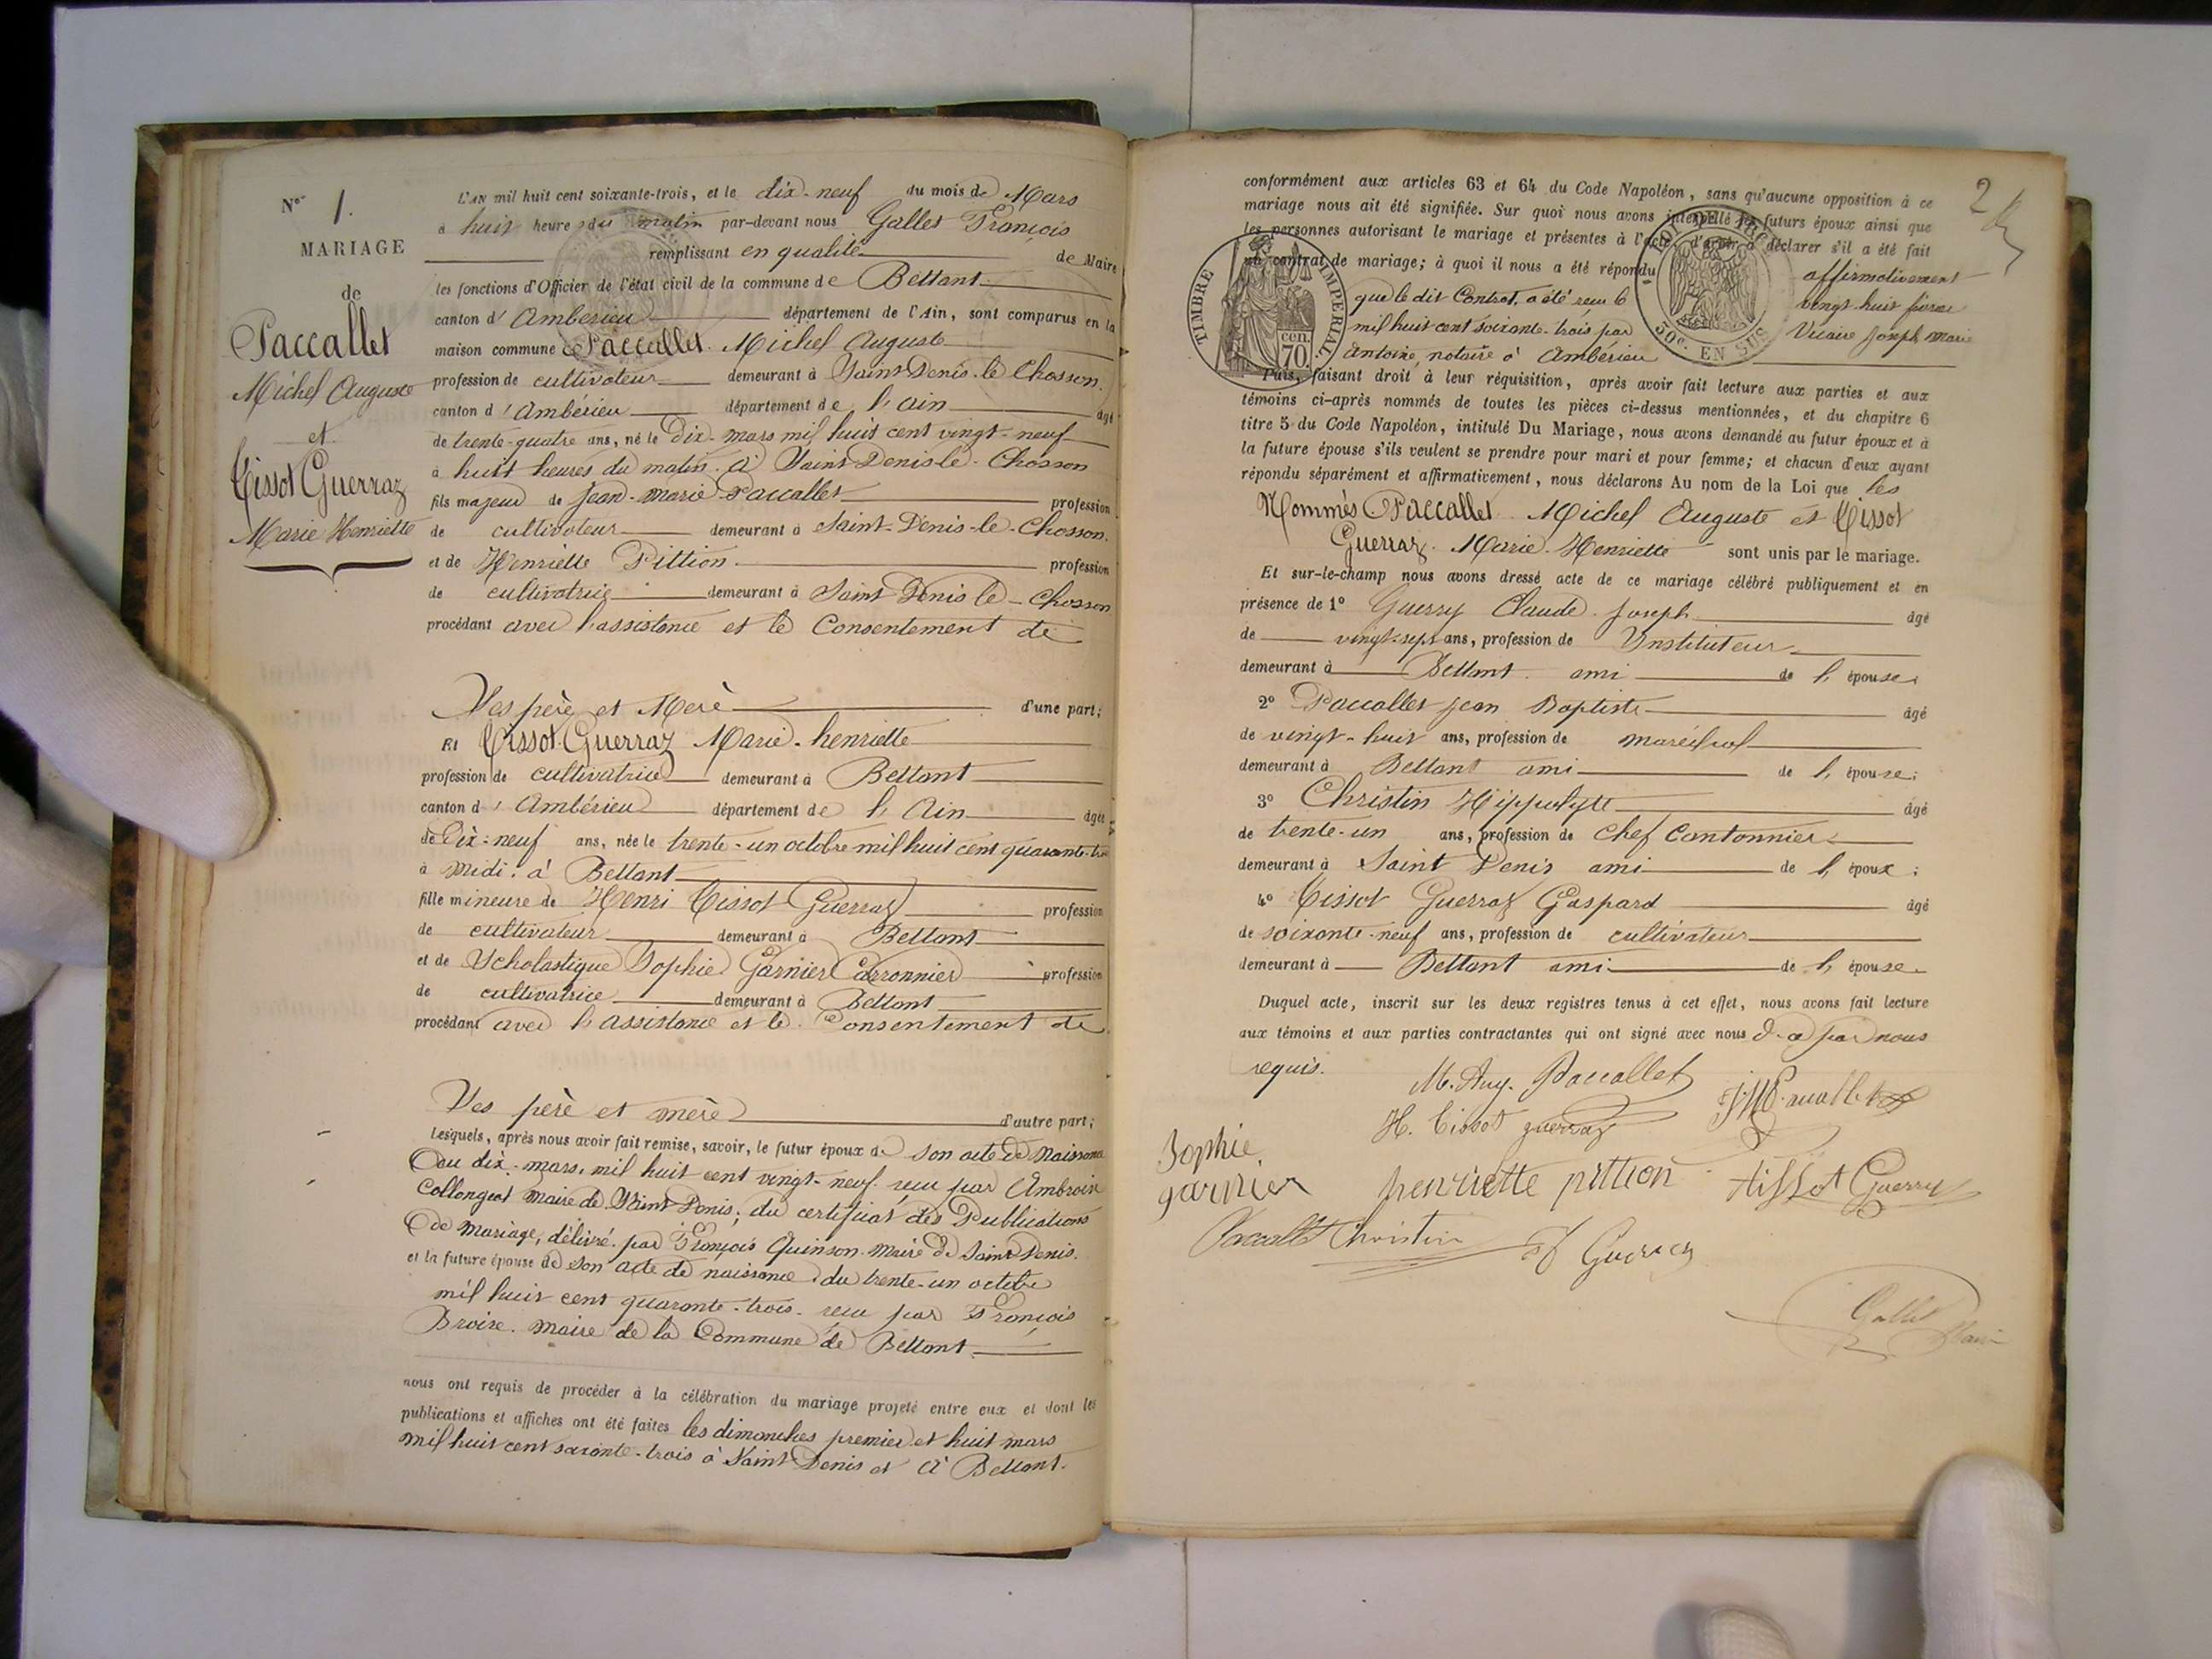 N° 1.
MARIAGE
de
Paccallet
Michel Auguste
et
Tissot Guerraz
Marie Henriette
L'AN mil huit cent soixante-trois, et le dix-neuf du mois de Mars
à huit heures du matin par-devant nous Gallet François
remplissant en qualité de Maire
les fonctions d'Officier de l'état civil de la commune de Bettant
canton d'Ambérieu département de l'Ain, sont comparus en la
maison commune Paccallet Michel Auguste
profession de cultivateur demeurant à Saint Denis-le Chosson.
canton d'Ambérieu département de l'ain âgé
de trente-quatre ans, né le Dix mars mil huit cent vingt-neuf
à huit heures du matin à Saint Denis le Chosson
fils majeur de Jean-Marie Paccallet profession
de cultivateur demeurant à Saint-Denis-le-Chosson.
et de Henriette Pittion profession
de cultivatrice demeurant à Saint Denis le Chosson
procédant avec l'assistance et le Consentement de
Ses père et Mère d'une part;
Et Tissot Guerraz Marie-henriette
profession de cultivatrice demeurant à Bettant
canton d'Ambérieu département de l'Ain âgée
de Dix-neuf ans, née le trente-un octobre mil huit cent quarante-trois
à midi à Bettant
fille mineure de Henri Tissot Guerraz profession
de cultivateur demeurant à Bettant
et de Scholastique Sophie Garnier Carronnier profession
de cultivatrice demeurant à Bettant
procédant avec l'assistance et le Consentement de
Ses père et mère d'autre part;
Lesquels, après nous avoir fait remise, savoir, le futur époux de son acte de Naissance
du dix mars, mil huit cent vingt-neuf reçu par Ambroise
Collonget Maire de Saint Denis; du certificat des Publications
de Mariage, délivré par François Quinson Maire de Saint Denis.
et la future épouse de son acte de naissance du trente-un octobre
mil huit cent quarante-trois reçu par François
Broire Maire de la Commune de Bettant
nous ont requis de procéder à la célébration du mariage projeté entre eux et dont les
publications et affiches ont été faites les dimanches premier et huit mars
mil huit cent soixante-trois à Saint Denis et à Bettant.
2
conformément aux articles 63 et 64 du Code Napoléon, sans qu'aucune opposition à ce
mariage nous ait été signifiée. Sur quoi nous avons interpellé les futurs époux ainsi que
les personnes autorisant le mariage et présentes à l'acte, d'avoir à déclarer s'il a été fait
un contrat de mariage; à quoi il nous a été répondu affirmativement
que le dit Contrat, a été reçu le vingt-huit février
mil huit cent soixante-trois par Vicaire Joseph Marie
antoine, notaire à Ambérieu
TIMBRE IMPERIAL
cen.
70.
50c. EN SUS
Puis, faisant droit à leur réquisition, après avoir fait lecture aux parties et aux
témoins ci-après nommés de toutes les pièces ci-dessus mentionnées, et du chapitre 6
titre 5 du Code Napoléon, intitulé Du Mariage, nous avons demandé au futur époux et à
la future épouse s'ils veulent se prendre pour mari et pour femme; et chacun d'eux ayant
répondu séparément et affirmativement, nous déclarons Au nom de la Loi que les
Nommés Paccallet Michel Auguste et Tissot
Guerraz Marie-Henriette sont unis par le mariage.
Et sur-le-champ nous avons dressé acte de ce mariage célébré publiquement et en
présence de 1° Guerry Claude Joseph âgé
de vingt-sept ans, profession de Instituteur
demeurant à Bettant ami de l'épouse
2° Paccallet Jean Baptiste âgé
de vingt-huit ans, profession de maréchal
demeurant à Bettant ami de l'épouse;
3° Christin Hippolyte âgé
de trente-un ans, profession de Chef Cantonnier
demeurant à Saint Denis ami de l'époux;
4° Tissot Guerraz Gaspard âgé
de soixante-neuf ans, profession de cultivateur
demeurant à Bettant ami de l'épouse
Duquel acte, inscrit sur les deux registres tenus à cet effet, nous avons fait lecture
aux témoins et aux parties contractantes qui ont signé avec nous de ce par nous
requis.
M. Aug. Paccallet
J M Paccallet
H. Tissot guerraz
Sophie
garnier
henriette pittion
tissot Guerry
Paccallet Christin
Guerraz
Gallet
Maire